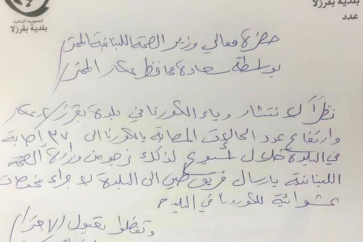 الجمهورية اللبنانية
بلدية بقرزلا
بلدية بقرزلا
عدد
حضرة معالي وزير الصحة اللبنانية المحترم
بواسطة سعادة محافظ عكار المحترم
نظراً لانتشار وباء الكورونا في بلدة بقرزلا عكار
وارتفاع عدد الحالات المصابة بالكورنا الى ٣٧ اصابة
في البلدة خلال اسبوع لذلك نرجو من وزارة الصحة
اللبنانية بارسال فريق طبي الى البلدة لاجراء فحوصات
عشوائية للكورونا في البلدة
وتفضلوا بقبول الاحترام